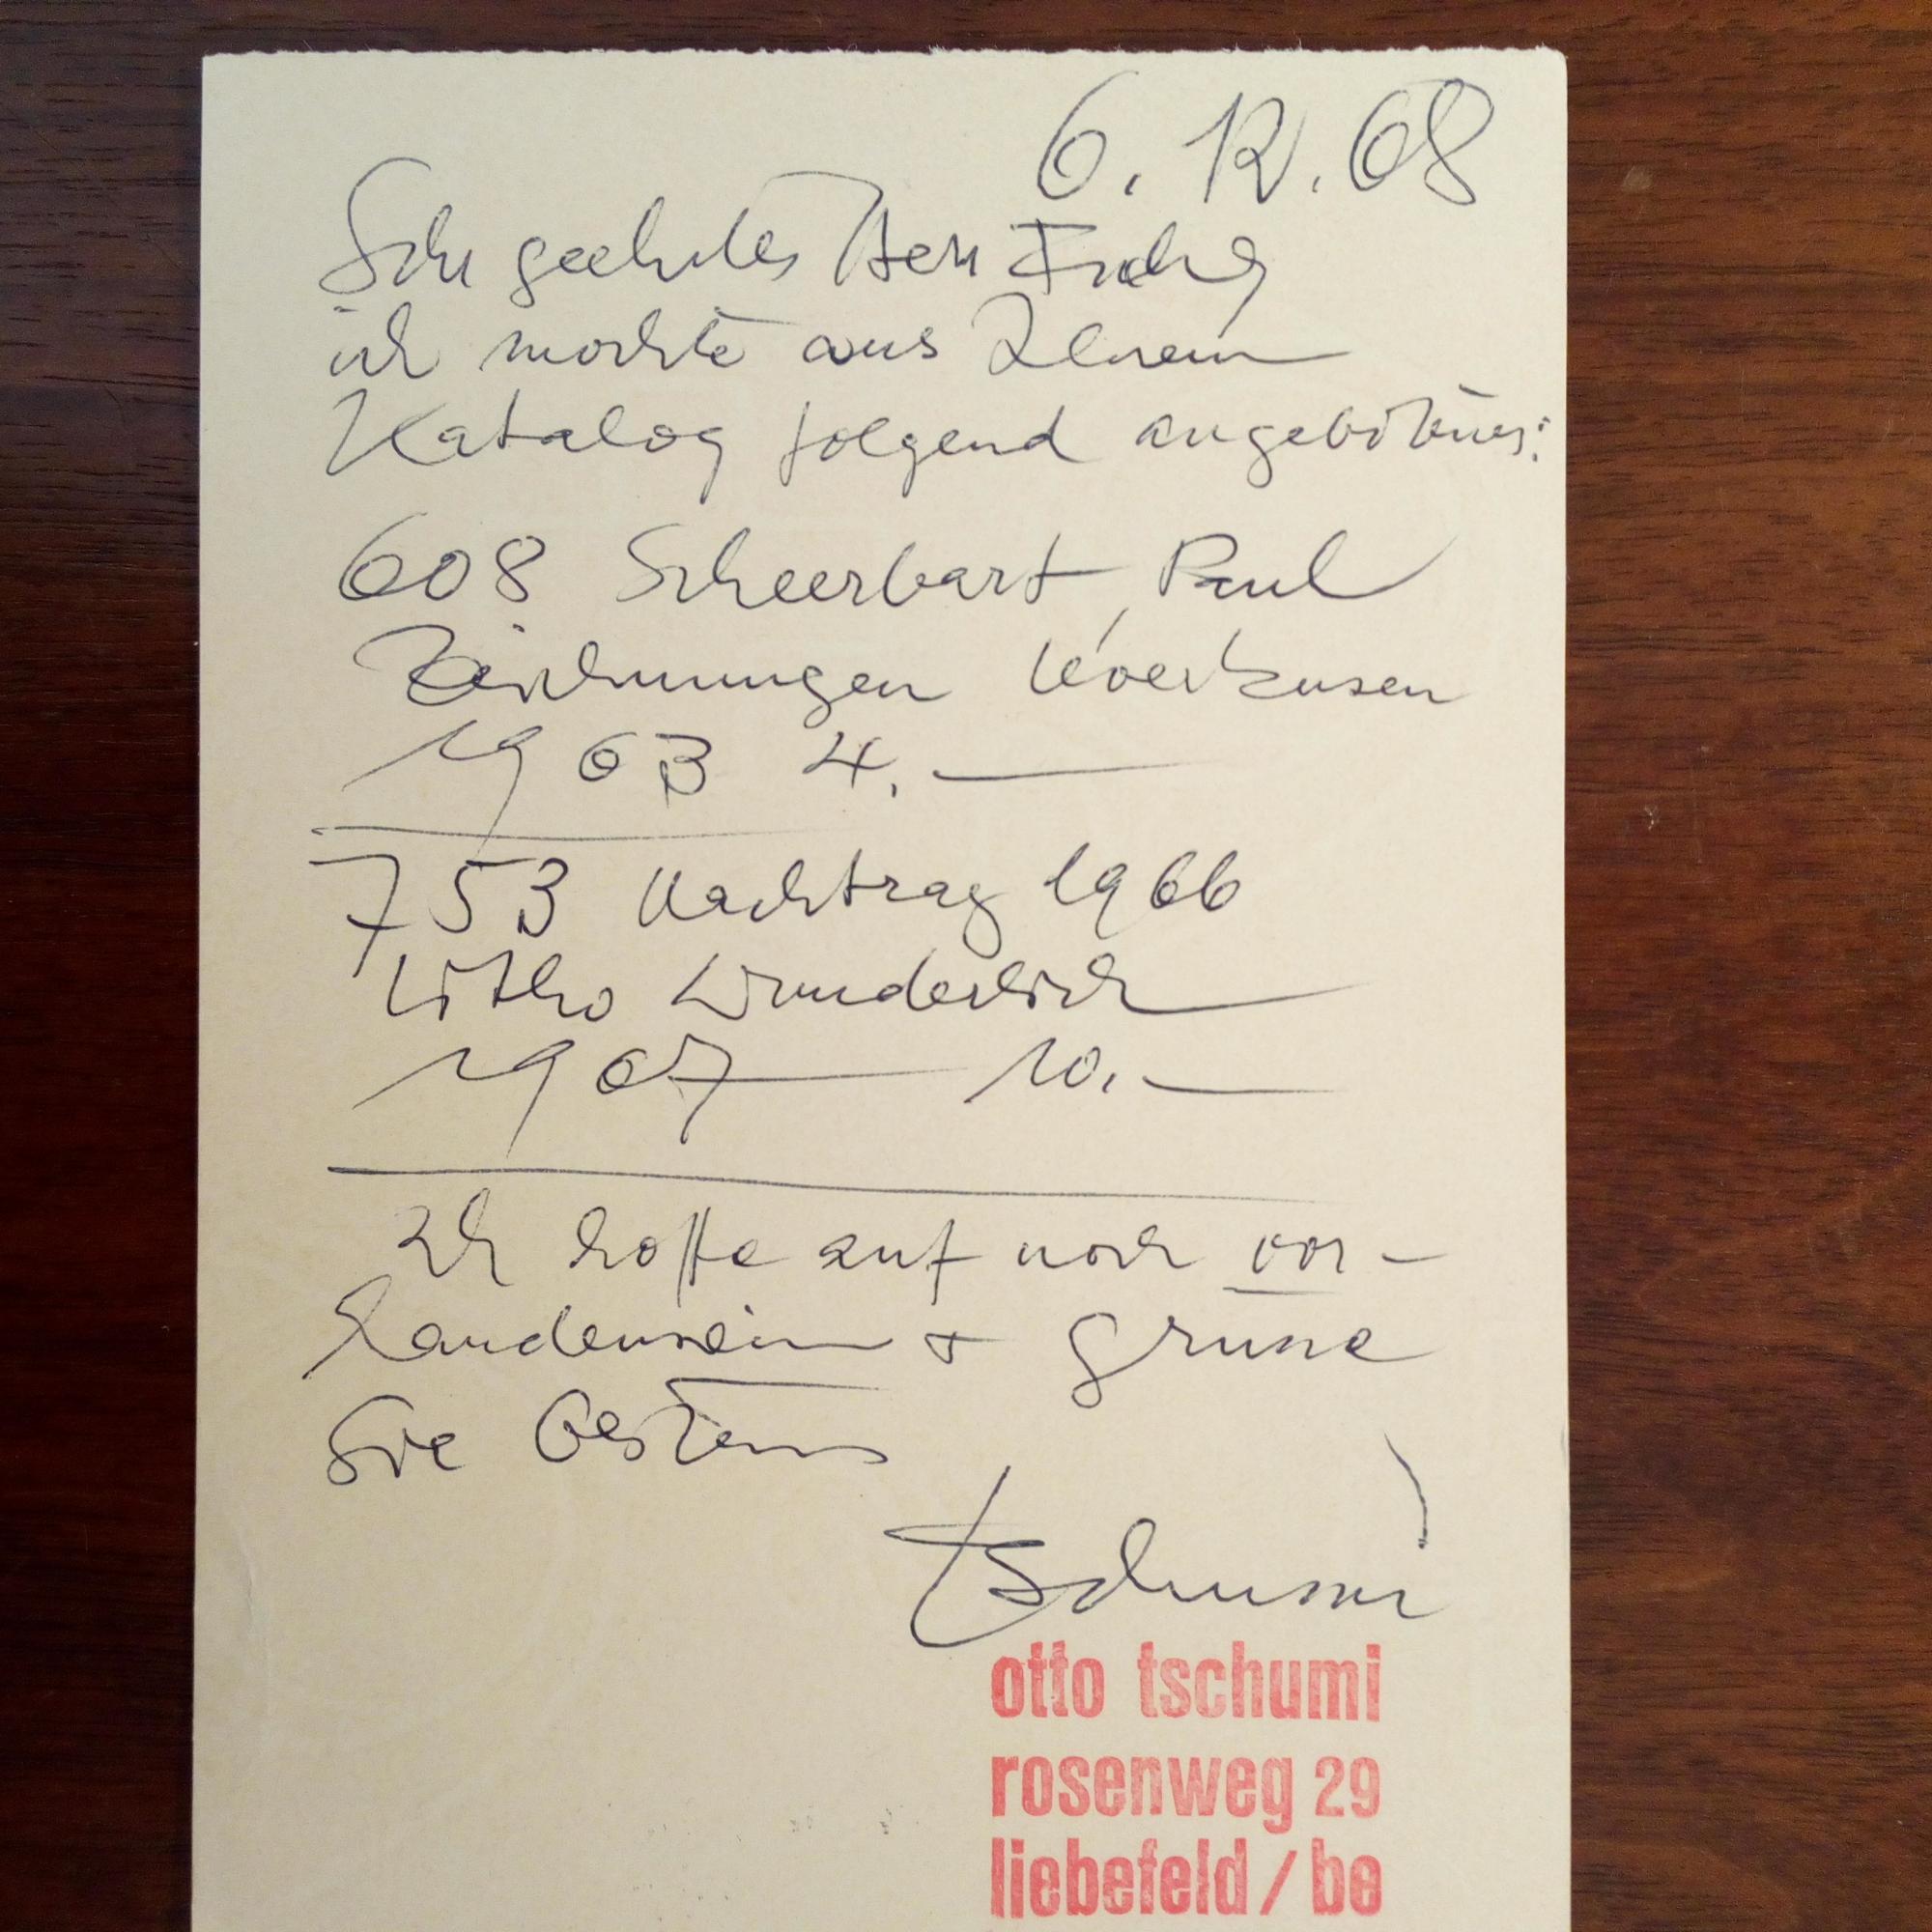 6. 12. 68
Sehr geehrter Herr
ich mochte aus Ihrem
Katalog folgend angebotenes:
608 Scheerbart, Paul
Zeichnungen Leverkusen
1963 4.—
753 Nachtrag 1966
Litho Wunderlich
1967 — 10.—
Ich hoffe auf noch vor-
handensein + grüsse
Sie bestens
tschumi
otto tschumi
rosenweg 29
liebefeld / be